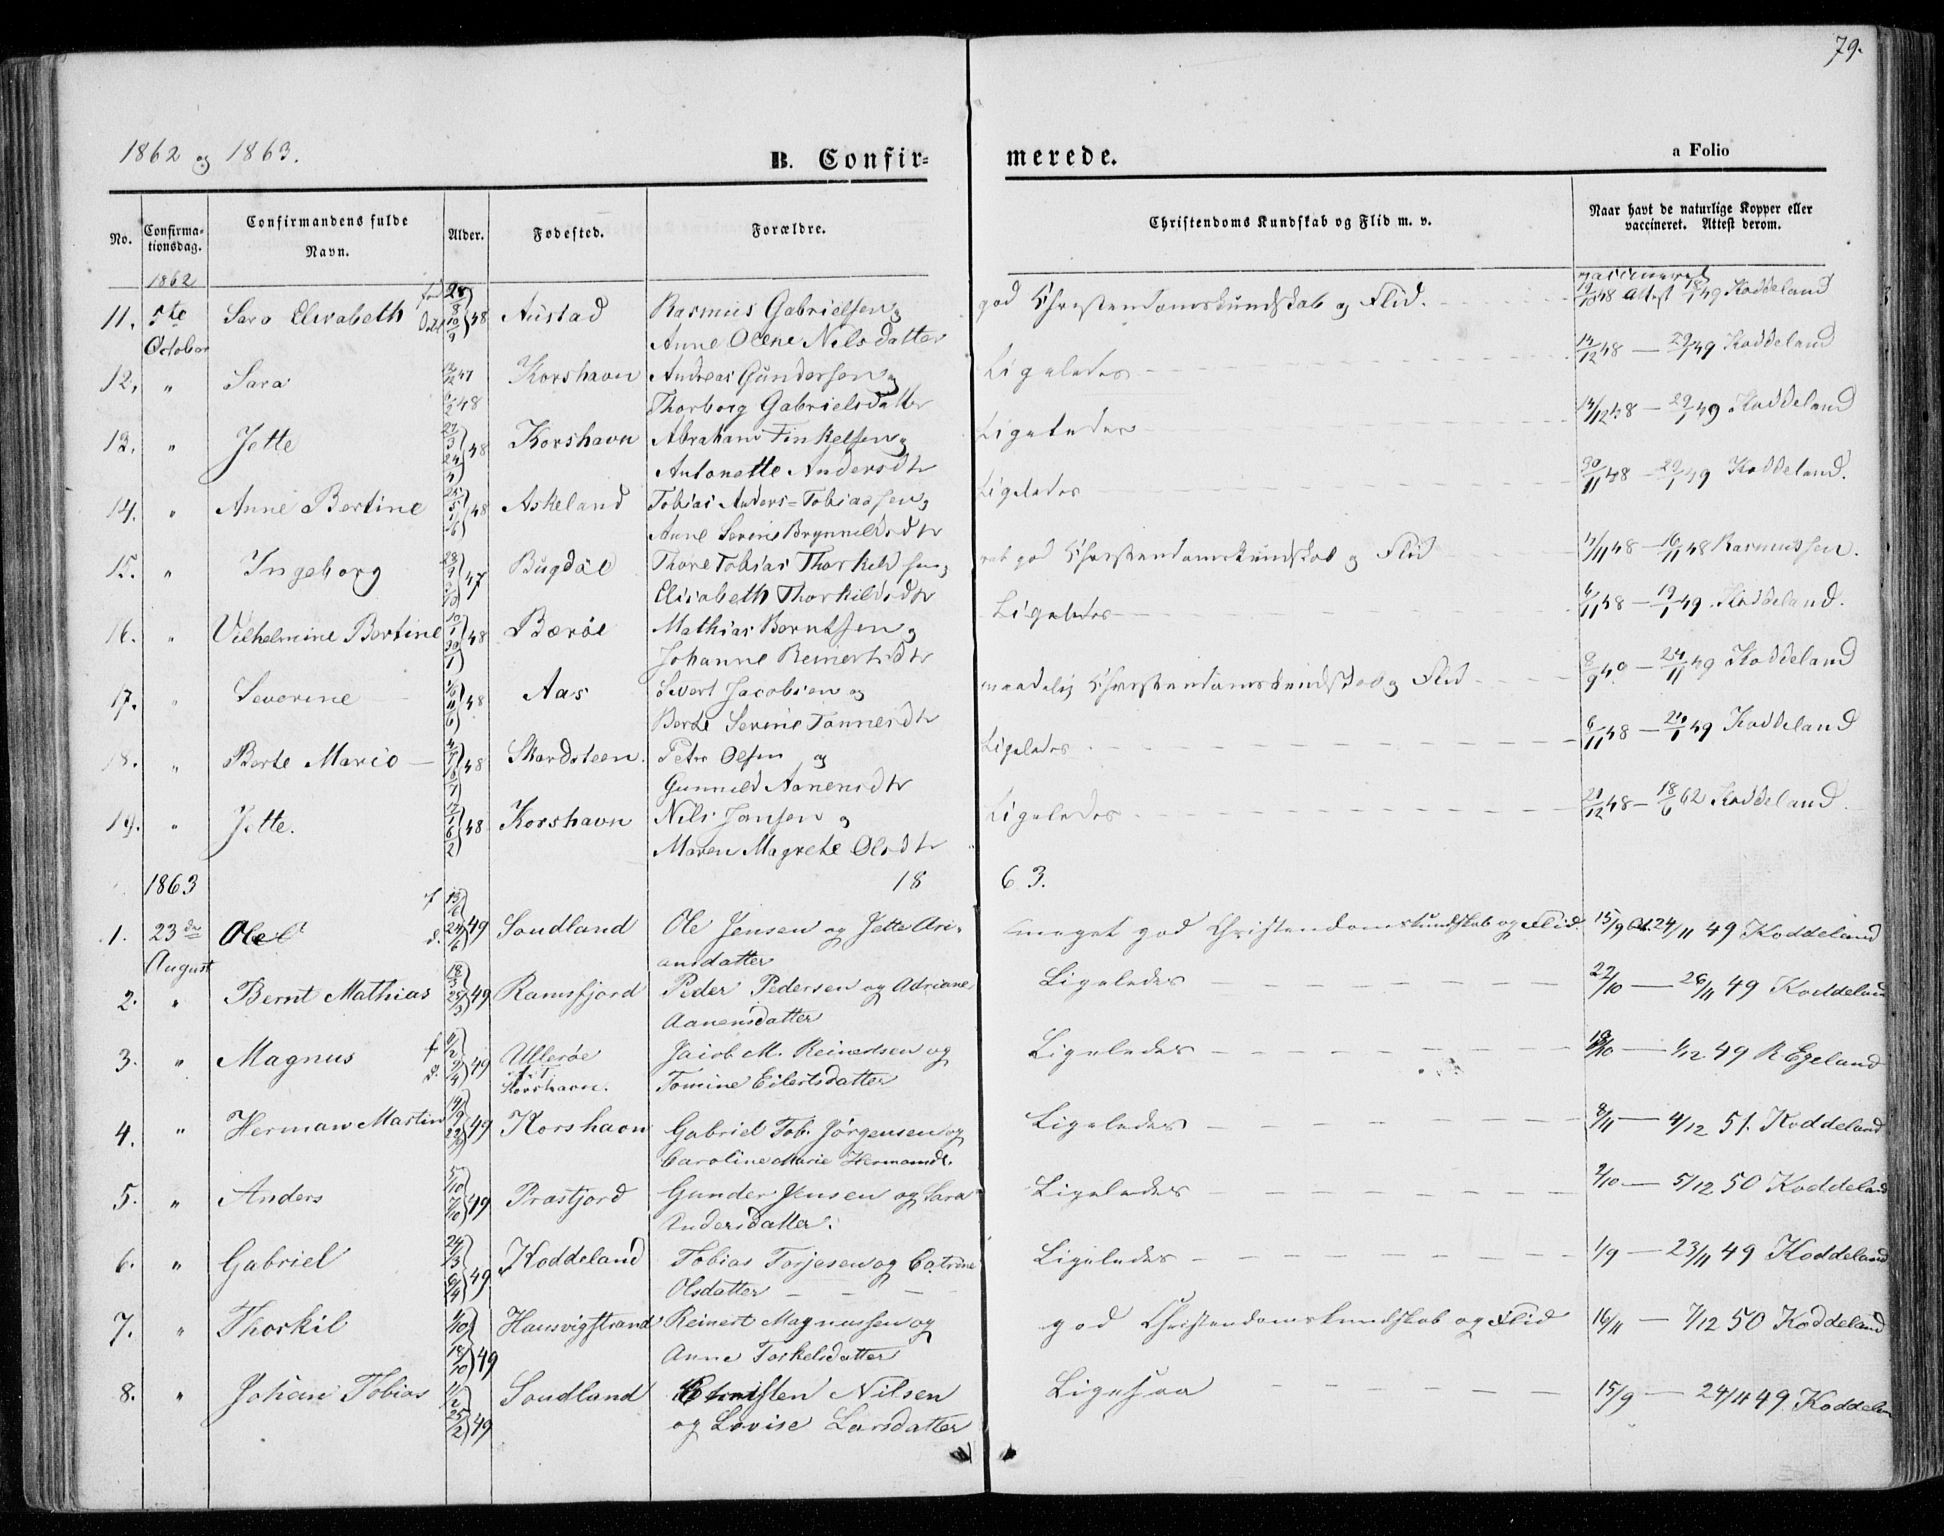 79.
1862 og 1863.
B. Confir=
merede.
a Folio
No.
Confirma-
tionsdag.
Confirmandens fulde
Navn.
Alder.
Fødested.
Forældre.
Christendoms Kundskab og Flid m. v.
Naar havt de naturlige Kopper eller
vaccineret. Attest derom.
1862
11. 5te Sara Elisabeth 48 Austad Rasmus Gabrielsen og god Christendomskundskab og Flid. Attest 49 Koddeland
October Anne Olene Nilsdatter
12. " Sara 47 Korshavn Andreas Gundersen og Ligeledes 14/12 48 — 29/1 49 Koddeland
48 Thorborg Gabrielsdatter
13. " Jette 48 Korshavn Abraham Finkelsen og Ligeledes 14/12 48 — 29/1 49 Koddeland
Antonette Andersdtr
14. " Anne Bertine 48 Askeland Tobias Anders=Tobiassen og Ligeledes 30/11 48 — 29/1 49 Koddeland.
Anne Serine Brynnildsdtr
15. " Ingeborg 47 Bugdøl Thore Tobias Thorkildsen og god Christendomskundskab og Flid 48 — 48 Rasmussen.
Elisabeth Thorkildsdtr
16. " Vilhelmine Bertine 48 Bærøe Mathias Berntsen og Ligeledes 6/11 48 — 19/1 49. Koddeland.
Johanne Reinertsdtr
17. " Severine 48 Aas Sivert Jacobsen og maadelig Christendomskundskab og Flid 24/11 49 Koddeland
Berte Serine Tønnesdtr
18. " Berte Marie 48 Skardsteen. Peter Olsen og Ligeledes 6/11 48 — 49 Koddeland
Gunnild Aanensdtr
19. " Jette. 48 Korshavn Nils Jansen og Ligeledes 21/12 48 — 18/6 62 Koddeland.
Maren Magrete Olsdtr
1863 18 63.
1. 23de Ole f d. 13/6 24/6 49 Soudland Ole Jensen og Jette Ari- meget god Christendomskundskab og Flid. 15/9 At. 24/11 49 Koddeland
August ansdatter
2. " Bernt Mathias 18/3 25/3 49 Ramsfjord Peder Pedersen og Adriane Ligeledes 22/10 — 26/11 49 Koddeland
Aanensdatter
3. " Magnus f d. 49 Ullerøe Jacob M. Reinertsen og Ligeledes — 1/12 49 R Egeland
Korshavn. Tomine Eilertsdatter
4. " Herman Martin 49 Korshavn Gabriel Tob. Jørgensen og Ligeledes 8/11 — 4/12 51. Koddeland
Caroline Marie Hermansdt.
5. " Anders 5/10 7/10 49 Prastjord Gunder Jensen og Sara Ligeledes 2/10 — 5/12 50 Koddeland
Andersdatter.
6. " Gabriel 24/3 6/4 49 Koddeland Tobias Torjesen og Catrine Ligeledes 1/9 — 23/11 49 Koddeland
Olsdatter
7. " Thorkil 49 Hausvigstrand Reinert Magnussen og god Christendomskundskab og Flid 16/11 — 7/12 50 Koddeland
Anne Torkelsdatter
8. " Johan Tobias 11/2 25/2 49 Soudland Christen Nilsen Ligesaa 15/9 — 24/11 49. Koddelan
og Lovise Larsdatter